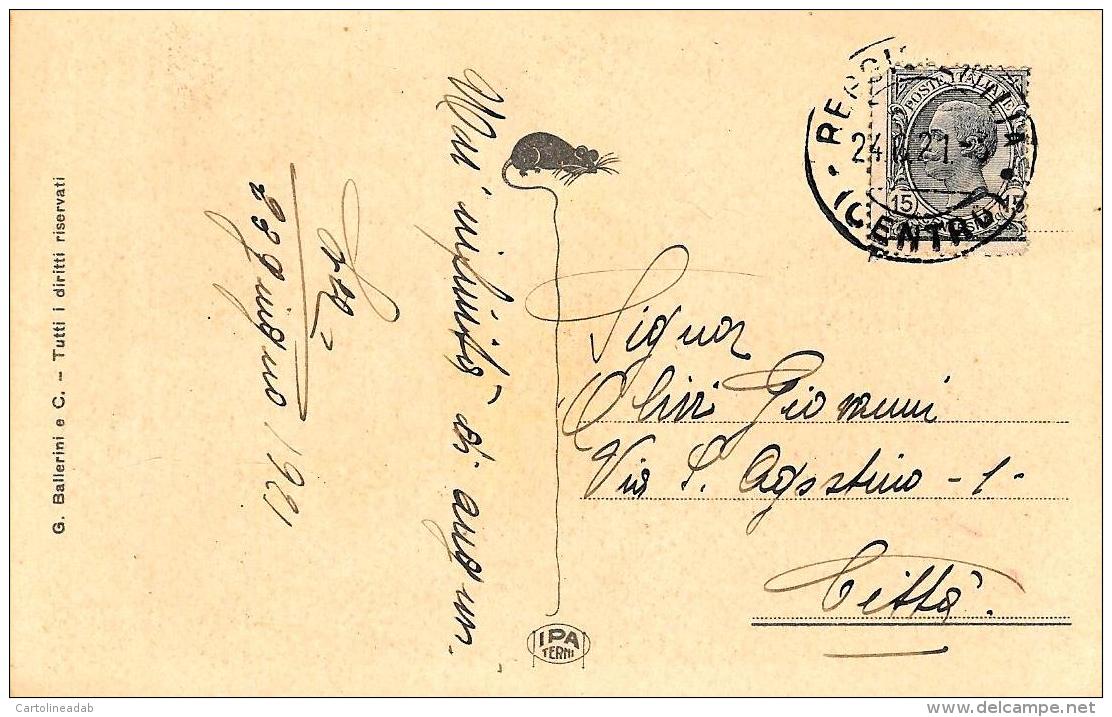 G. Ballerini e C. – Tutti i diritti riservati
23 giugno 1921
Un' infinità di auguri.
IPA
TERNI
POSTE ITALIANE
15 15
REGGIO
24.6.21-
(CENTRO)
Signor
Olivi Giovanni
Via S. Agostino - 1 -
Città.
Cartolineadab
www.delcampe.net